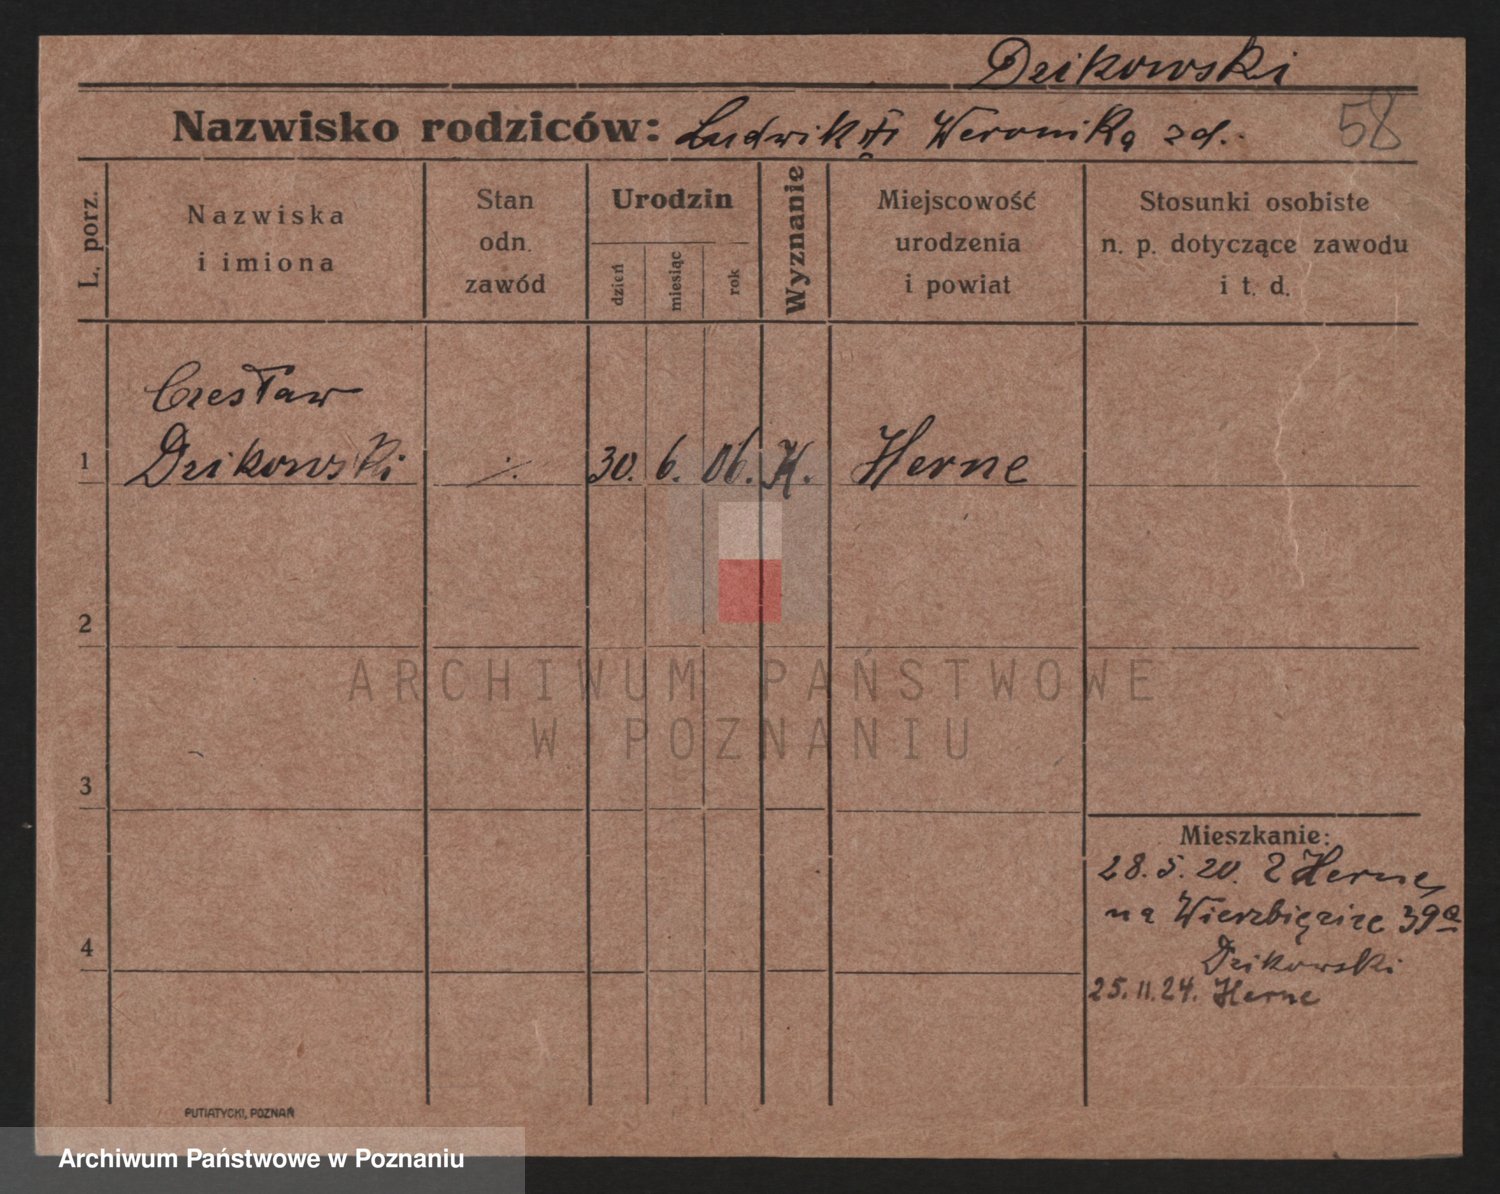 Dzikowski
Nazwisko rodziców: Ludwik i Weronika zd.
58
L. porz.
Nazwiska
i imiona
Stan
odn.
zawód
Urodzin
dzień
miesiąc
rok
Wyznanie
Miejscowość
urodzenia
i powiat
Stosunki osobiste
n. p. dotyczące zawodu
i t. d.
Czesław
1 Dzikowski ./. 30. 6. 06. K. Herne
2
ARCHIWUM PAŃSTWOWE
W POZNANIU
3
Mieszkanie:
28.5.20. z Herne,
na Wierzbięcice 39a
4
Dzikowski
25.11.24. Herne
PUTIATYCKI, POZNAŃ
Archiwum Państwowe w Poznaniu